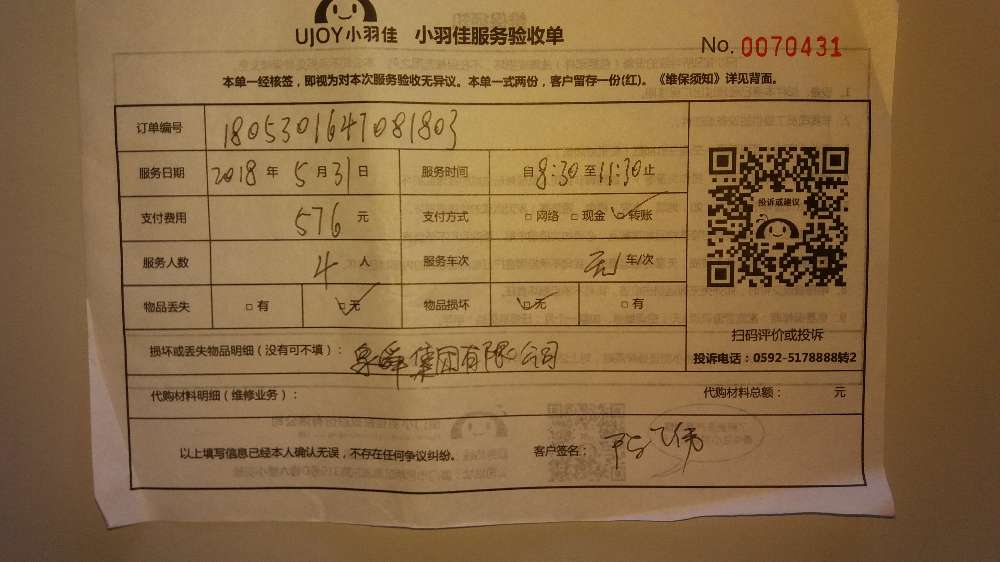 UJOY小羽佳 小羽佳服务验收单
No. 0070431
本单一经核签，即视为对本次服务验收无异议。本单一式两份，客户留存一份(红)。《维保须知》详见背面。
订单编号 1805301647081803
服务日期 2018 年 5 月 31 日 服务时间 自 8:30 至 11:30 止
支付费用 576 元 支付方式 □ 网络 □ 现金 □ 转账
服务人数 4 人 服务车次 无 车/次
物品丢失 □ 有 □ 无 物品损坏 □ 无 □ 有
投诉或建议
扫码评价或投诉
投诉电话：0592-5178888转2
损坏或丢失物品明细（没有可不填）： 泉舜集团有限公司
代购材料明细（维修业务）： 代购材料总额： 元
以上填写信息已经本人确认无误，不存在任何争议纠纷。 客户签名：